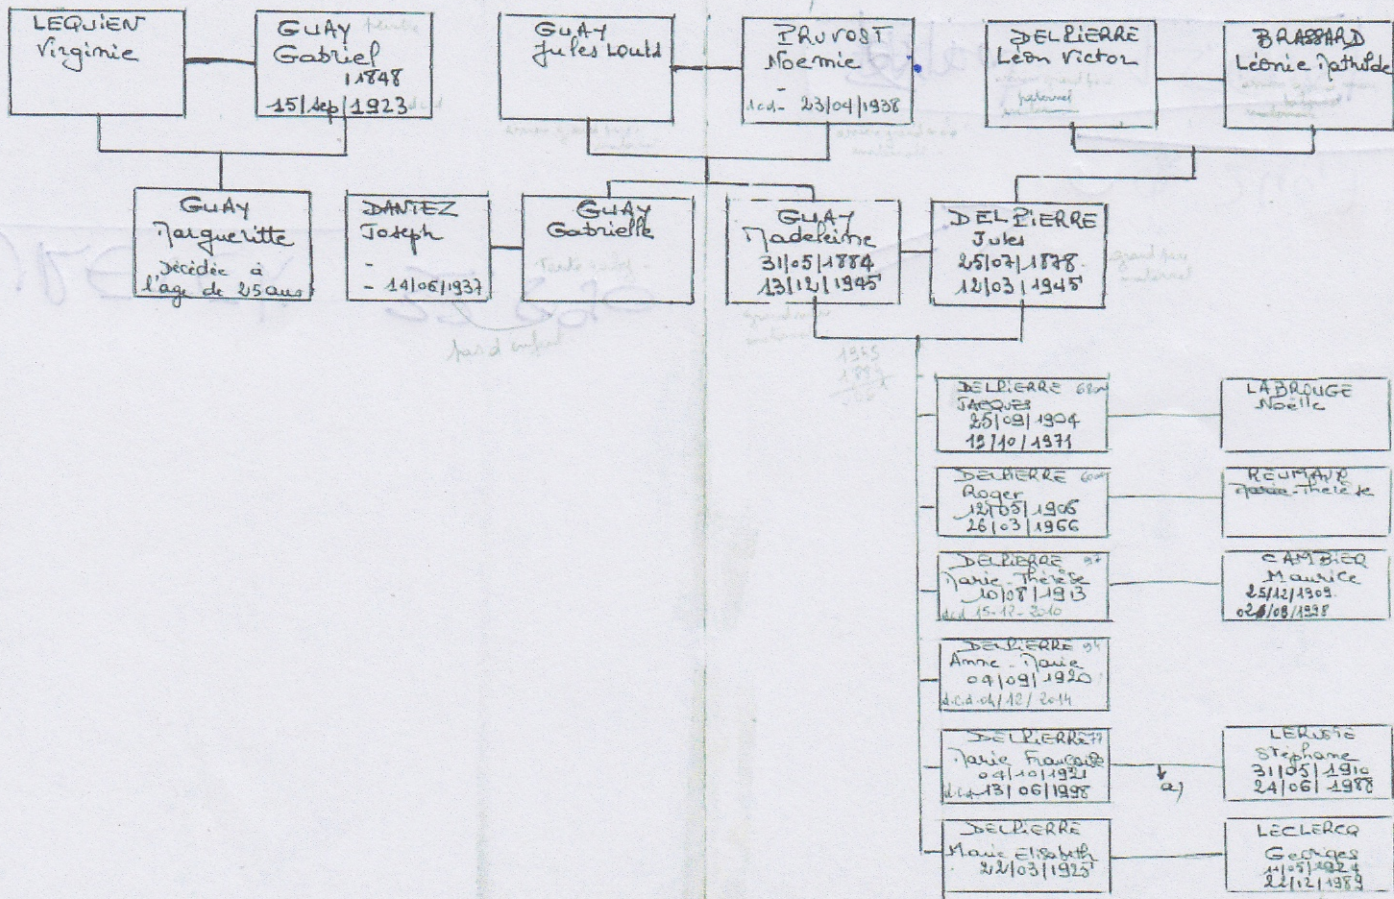 LEQUIEN
Virginie
GUAY
Gabriel
1848
15/Sep/1923
GUAY
Jules Louis
PRUVOST
Noemie
-
d.c.d- 23/04/1938
DELPIERRE
Léon Victor
paternel
BRASSARD
Léonie Mathilde
GUAY
Margueritte
Décédée à
l'age de 25 ans
DANTEZ
Joseph
-
- 14/06/1937
GUAY
Gabrielle
GUAY
Madeleine
31/05/1884
13/12/1945
DELPIERRE
Jules
25/07/1878
12/03/1945
pas d'enfant
DELPIERRE
JACQUES
25/09/1904
19/10/1971
LABROUGE
Noëlle
DELPIERRE
Roger
12/05/1906
26/03/1966
REUMAUX
Marie-Thérèse
DELPIERRE 97
Marie-Thérèse
10/08/1913
d.c.d 15-12-2010
CAMBIER
Maurice
25/12/1909
/09/1998
DELPIERRE 94
Anne-Marie
04/09/1920
d.c.d. 04/12/2014
DELPIERRE 77
Marie Françoise
04/10/1921
d.c.d 13/06/1998
a)
LERUSTE
Stéphane
31/05/1910
24/06/1988
DELPIERRE
Marie Elisabeth
22/03/1925
LECLERCQ
Georges
11/05/1924
22/12/1989